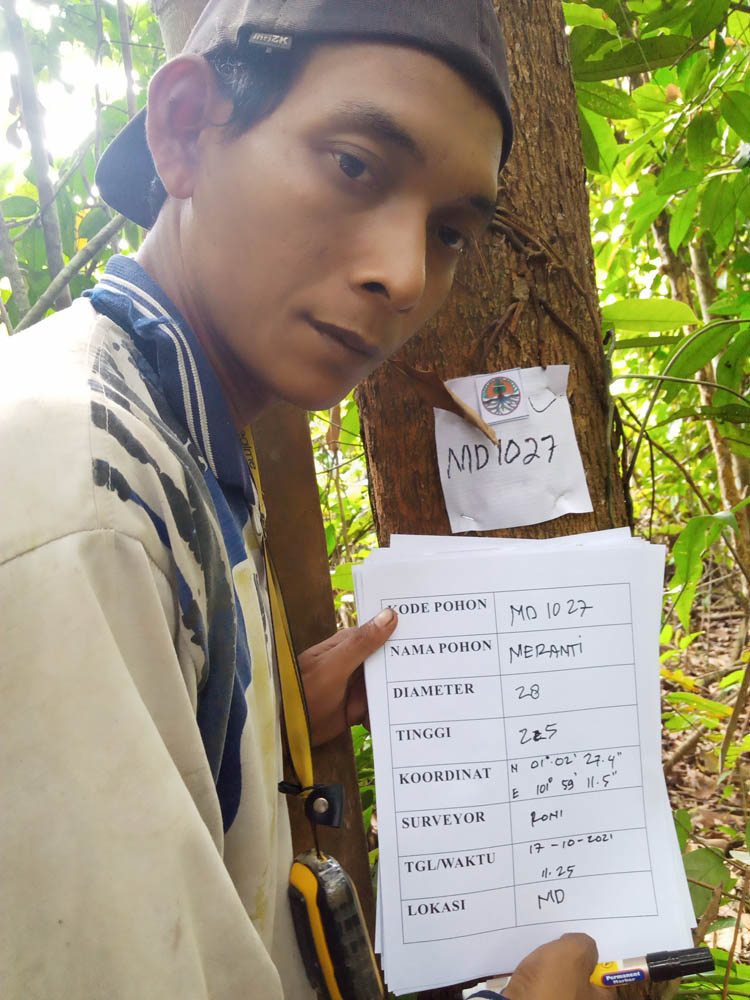 MD1027
KODE POHON MD 1027
NAMA POHON MERANTI
DIAMETER 28
TINGGI 25
KOORDINAT N 01°.02' 27.4"
E 101° 59' 11.5"
SURVEYOR RONI
TGL/WAKTU 17-10-2021
11.25
LOKASI MD
Permanent
Marker